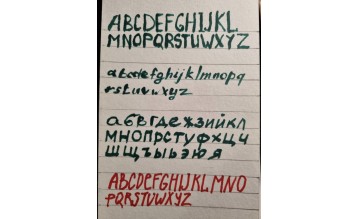 ABCDEFGHIJKL
MNOPQRSTUVWXYZ
abcdefghijklmnopq
rstuvwxyz
абвгдежзийкл
мнопрстуфхцч
шщъыьэюя
ABCDEFGHIJKLMNO
PQRSTUVWXYZ